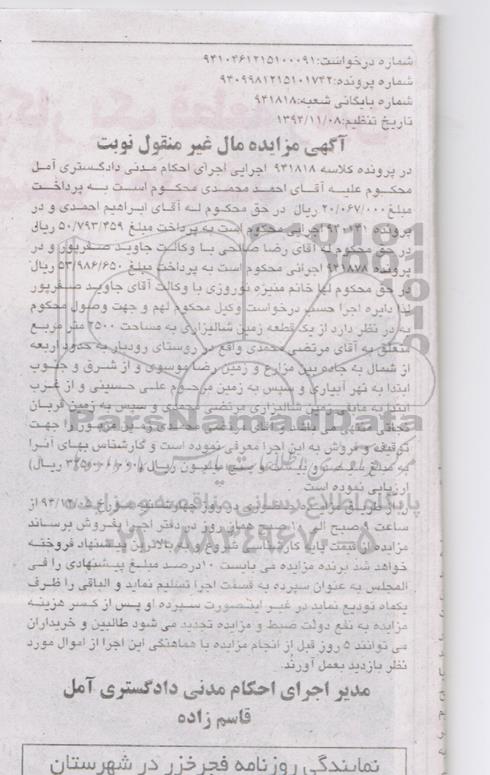 شماره درخواست: ۹۴۱۰۴۶۱۲۱۵۱۰۰۰۹۱
شماره پرونده: ۹۴۰۹۹۸۱۲۱۵۱۰۱۷۴۲
شماره بایگانی شعبه: ۹۴۱۸۱۸
تاریخ تنظیم: ۱۳۹۴/۱۱/۰۸
آگهی مزایده مال غیر منقول نوبت
در پرونده کلاسه ۹۴۱۸۱۸ اجرایی اجرای احکام مدنی دادگستری آمل
محکوم علیه آقای احمد محمدی محکوم است به پرداخت
مبلغ ۲۰/۰۶۷/۰۰۰ ریال در حق محکوم له آقای ابراهیم احمدی و در
پرونده اجرایی محکوم است به پرداخت مبلغ ۵۰/۷۹۳/۴۵۹ ریال
در حق محکوم له آقای رضا صالحی با وکالت جاوید صفرپور و در
پرونده ۹۴۱۸۷۸ اجرائی محکوم است به پرداخت مبلغ ۵۳/۹۸۶/۶۵۰ ریال
در حق محکوم لها خانم منیژه نوروزی با وکالت آقای جاوید صفرپور
لذا دایره اجرا حسب درخواست وکیل محکوم لهم و جهت وصول محکوم
به در نظر دارد از یک قطعه زمین شالیزاری به مساحت ۲۵۰۰ متر مربع
متعلق به آقای مرتضی محمدی واقع در روستای رودبار به حدود اربعه
از شمال به جاده بین مزارع و زمین رضا موسوی و از شرق و جنوب
ابتدا به نهر آبیاری و سپس به زمین مرحوم علی حسینی و از غرب
ابتدا به مابقی زمین شالیزاری مرتضی محمدی و سپس به زمین قربان
جهت
توقیف و فروش به این اجرا معرفی نموده است و کارشناس بهای آنرا
به مبلغ سیصد و بیست و پنج میلیون ریال
ارزیابی نموده است
ParsNamadData
پایگاه اطلاع رسانی مناقصه و مزایده
۰۲۱-۸۸۳۴۹۶۷۰-۵
از طریق مزایده حضوری در روز چهارشنبه مورخ از
ساعت ۹ صبح الی ۱۰ صبح همان روز در دفتر اجرا بفروش برساند
مزایده از قیمت پایه کارشناسی شروع و به بالاترین پیشنهاد فروخته
خواهد شد برنده مزایده می بایست ۱۰درصد مبلغ پیشنهادی را فی
المجلس به عنوان سپرده به قسمت اجرا تسلیم نماید و الباقی را ظرف
یکماه تودیع نماید در غیر اینصورت سپرده او پس از کسر هزینه
مزایده به نفع دولت ضبط و مزایده تجدید می شود طالبین و خریداران
می توانند ۵ روز قبل از انجام مزایده با هماهنگی این اجرا از اموال مورد
نظر بازدید بعمل آورند.
مدیر اجرای احکام مدنی دادگستری آمل
قاسم زاده
نمایندگی روزنامه فجرخزر در شهرستان